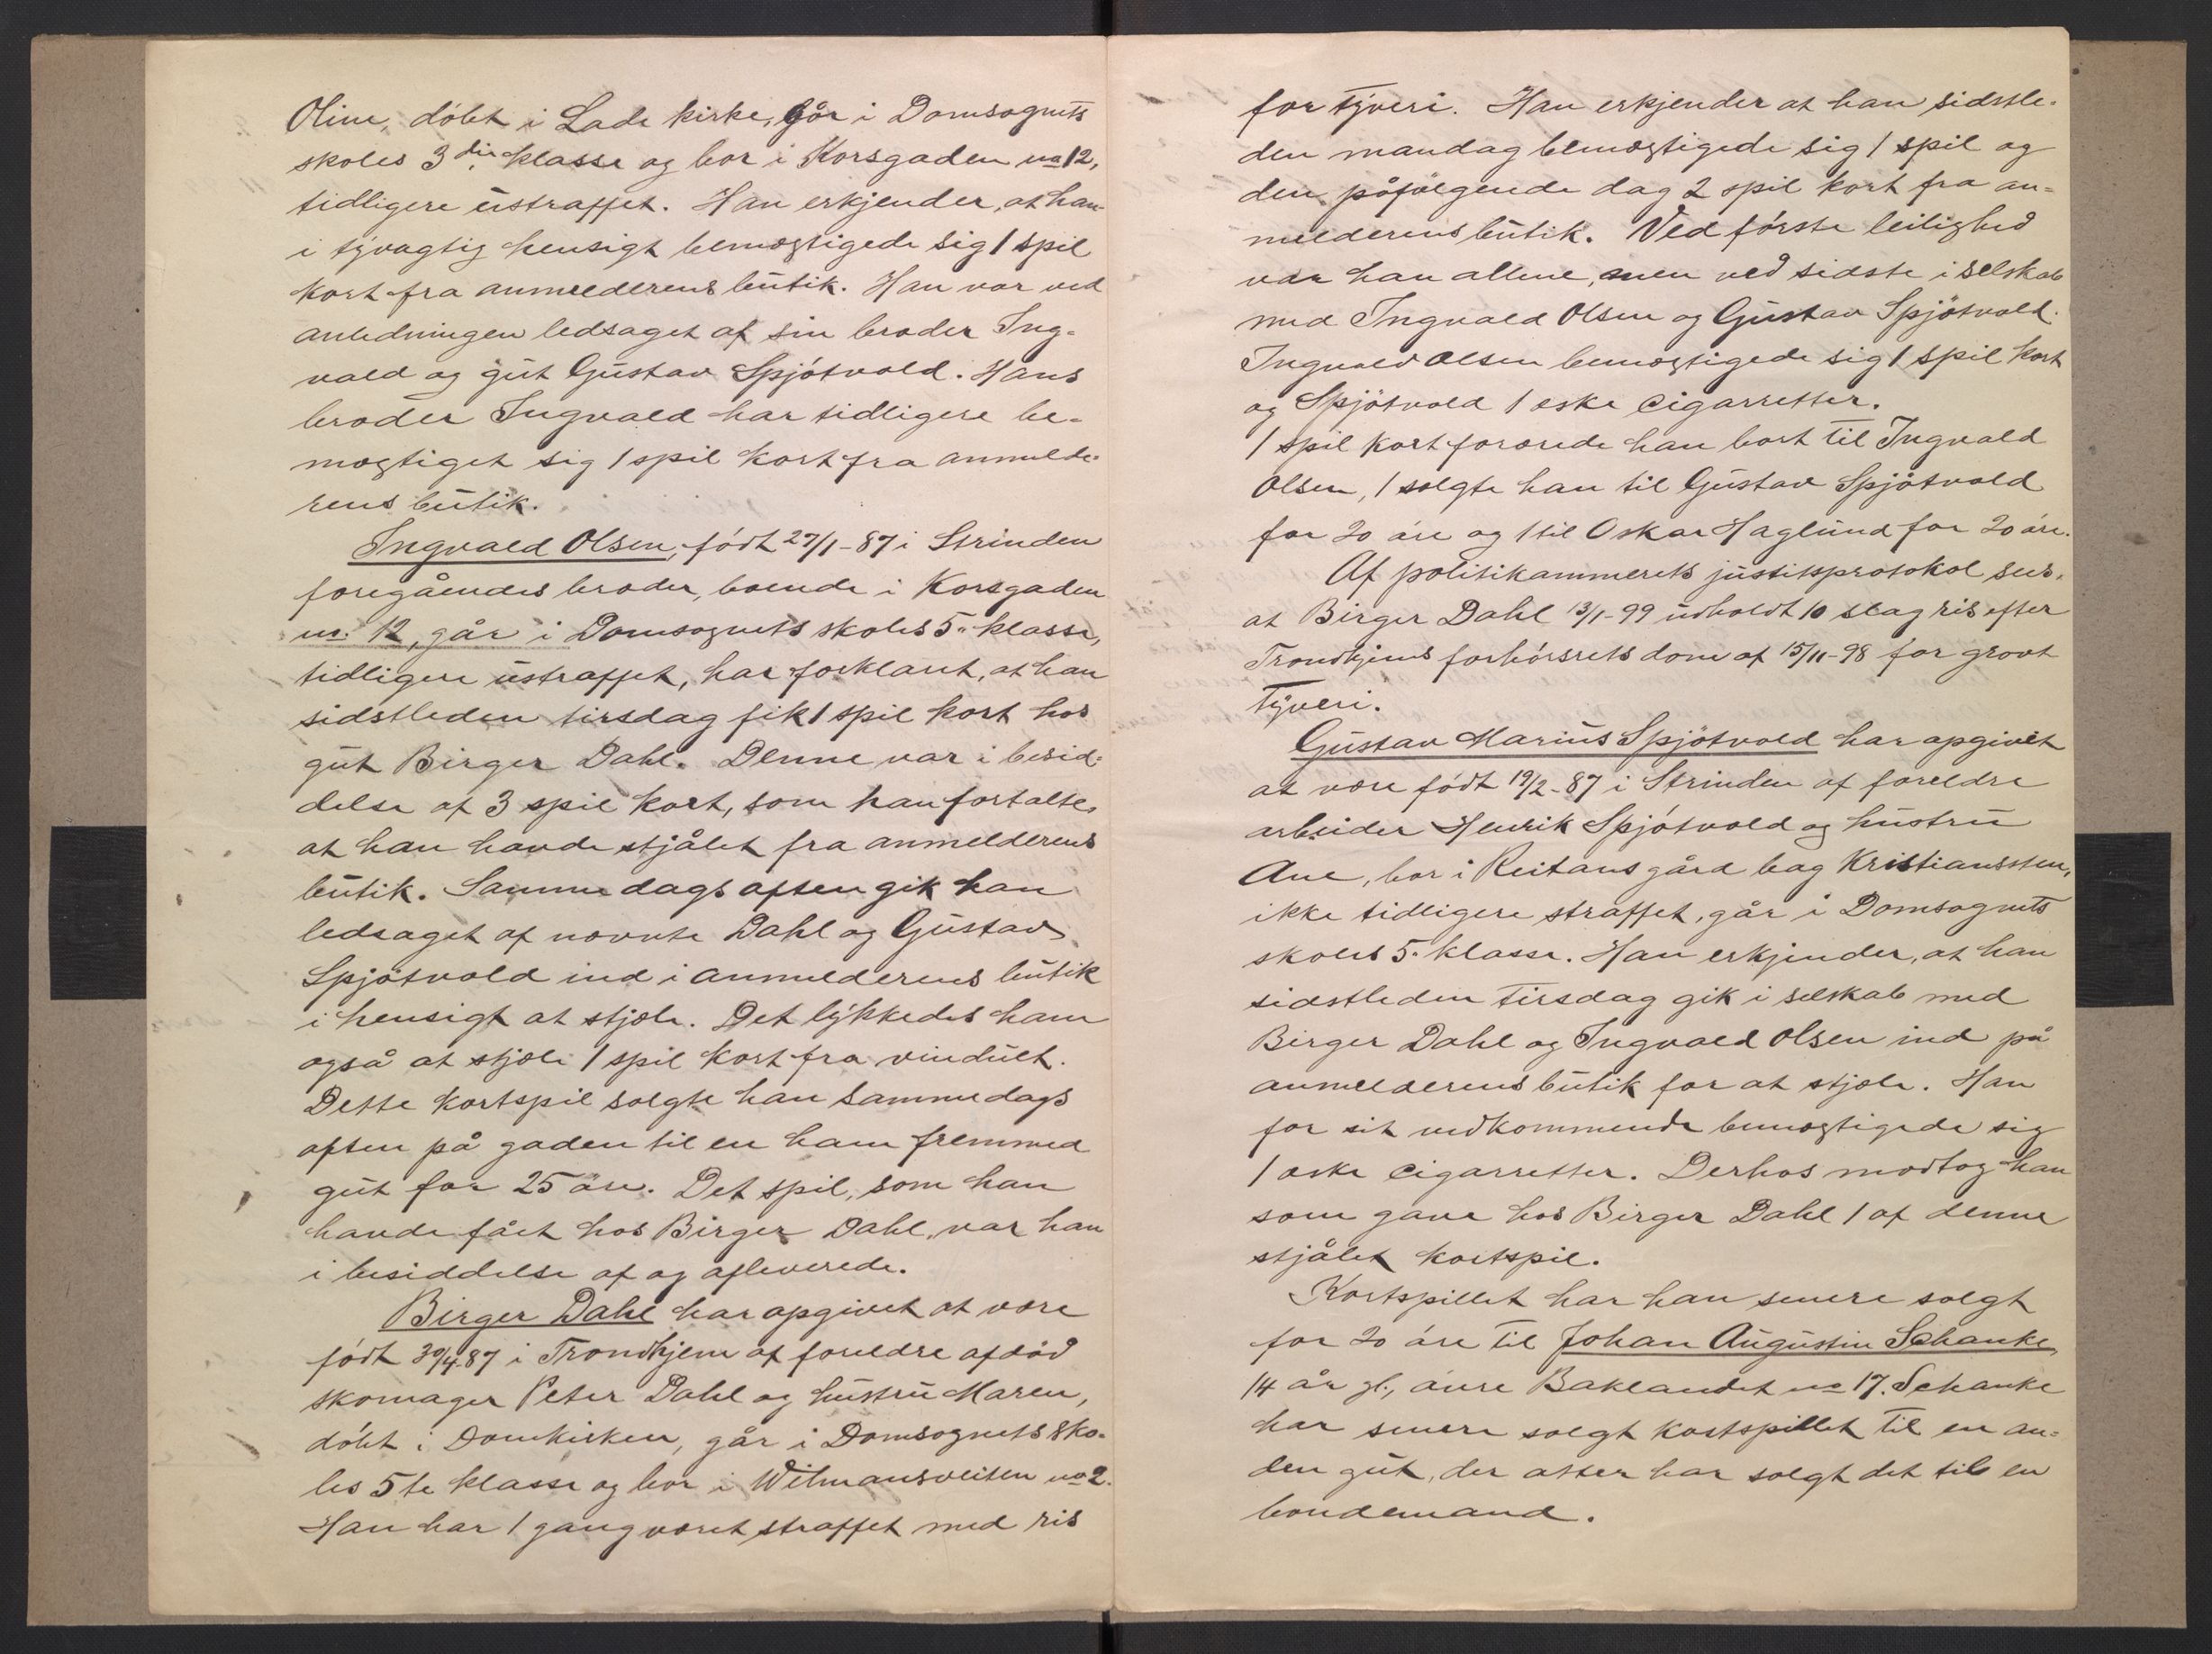 Oline, döbt i Lade kirke, går i Domsognets
skoles 3die klasse og bor i Korsgaden no 12,
tidligere ustraffet. Han erkjender, at han
i tyvagtig hensigt bemægtigede sig 1 spil
kort fra anmelderens butik. Han var ved
anledningen ledsaget af sin broder Ing-
vald og gut Gustav Spjötvold. Hans
broder Ingvald har tidligere be-
mægtiget sig 1 spil kort fra anmelde-
rens butik.
Ingvald Olsen, född 27/1-87 i Strinden
foregåendes broder, boende i Korsgaden
no. 12, går i Domsognets skoles 5" klasse,
tidligere ustraffet, har forklaret, at han
sidstleden tirsdag fik 1 spil kort hos
gut Birger Dahl. Denne var i besid-
delse af 3 spil kort, som han fortalte,
at han havde stjålet fra anmelderens
butik. Samme dags aften gik han
ledsaget af nævnte Dahl og Gustav
Spjötvold ind i anmelderens butik
i hensigt at stjæle. Det lykkedes ham
også at stjæle 1 spil kort fra vinduet.
Dette kortspil solgte han samme dags
aften på gaden til en ham fremmed
gut for 25 öre. Det spil, som han
havde fået hos Birger Dahl, var han
i besiddelse af og afleverede.
Birger Dahl har opgivet at være
födt 30/4 87 i Trondhjem af foreldre afdöd
skomager Peter Dahl og hustru Maren,
döbt i Domkirken, går i Domsognets sko-
les 5te klasse og bor i Wilmansveiten no 2.
Han har 1 gang været straffet med ris
for tyveri. Han erkjender at han sidstle-
den mandag bemægtigede sig 1 spil og
den påfölgende dag 2 spil kort fra an-
melderens butik. Ved förste leilighed
var han allene, men ved sidste i selskab
med Ingvald Olsen og Gustav Spjötvold.
Ingvald Olsen bemægtigede sig 1 spil kort
og Spjötvold 1 æske cigarretter.
1 spil kort forærede han bort til Ingvald
Olsen, 1 solgte han til Gustav Spjötvold
for 20 öre og 1 til Oskar Haglund for 20 öre.
Af politikammerets justitsprotokol sees,
at Birger Dahl 13/1-99 udholdt 10 slag ris efter
Trondhjems forhörsrets dom af 15/11-98 for grovt
tyveri.
Gustav Marius Spjötvold har opgivet
at være födt 19/2-87 i Strinden af foreldre
arbeider Henrik Spjötvold og hustru
Ane, bor i Reitans gård bag Kristianssten,
ikke tidligere straffet, går i Domsognets
skoles 5. klasse. Han erkjender, at han
sidstleden tirsdag gik i selskab med
Birger Dahl og Ingvald Olsen ind på
anmelderens butik for at stjæle. Han
for sit vedkommende bemægtigede sig
1 æske cigarretter. Derhos modtog han
som gave hos Birger Dahl 1 af denne
stjålet kortspil.
Kortspillet har han senere solgt
for 20 öre til Johan Augustin Schanke,
14 år gl., övre Baklandet no 17. Schanke
har senere solgt kortspillet til en an-
den gut, der atter har solgt det til en
bondemand.